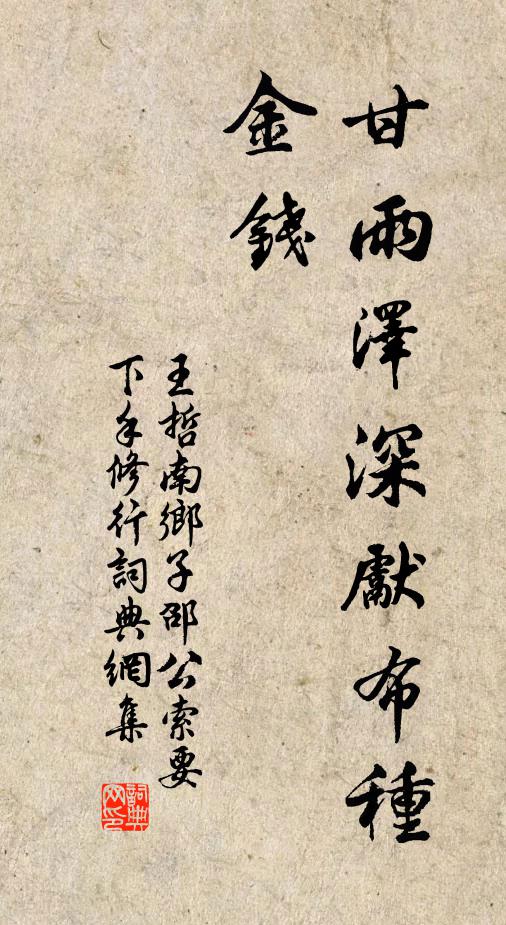 甘雨澤深獻布種
金錢
王哲南鄉子邵公索要
下手修行詞典網集
詞典網印